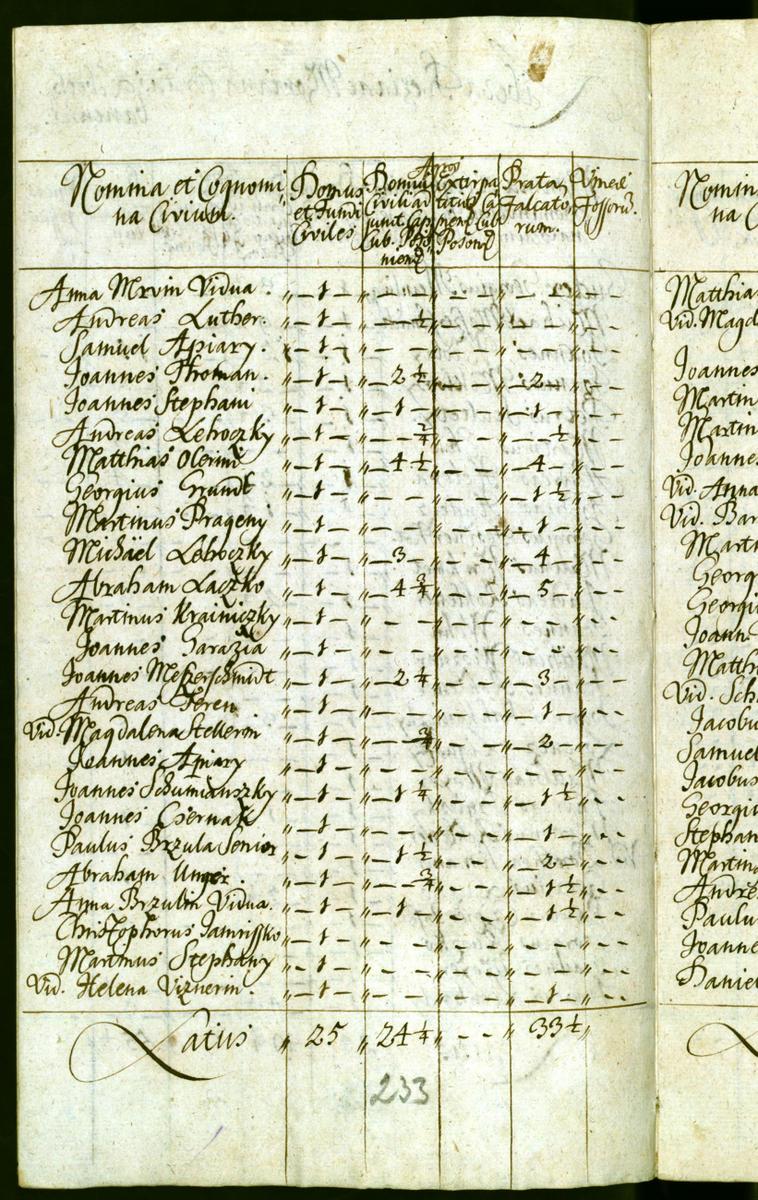 Nomina et Cognomi
na Civium.
Domus
et Fundi
Civiles
Agros
Domui
Civili ad
junct. Cap.
Sub. Poso
niens
Extirpa
titus Ca
piens Sub
Posons
Prata
Falcato
rum.
Vineæ
Fossorum
Anna Mrvin Vidua. „ 1 – „ – – „ – – „ – – „ – –
Andreas Luther. „ 1 – „ – ½ „ – – „ – – „ – –
Samuel Apiary. „ 1 – „ – – „ – – „ – – „ – –
Joannes Throman. „ 1 – „ 2 ¼ „ – – „ 2 – „ – –
Joannes Stephani „ 1 – „ 1 – „ – – „ 1 – „ – –
Andreas Lehoczky „ 1 – „ – ¾ „ – – „ – ½ „ – –
Matthias Olerini „ 1 – „ 4 ½ „ – – „ 4 – „ – –
Georgius Grundt „ 1 – „ – – „ – – „ 1 ½ „ – –
Martinus Prageny „ 1 – „ – – „ – – „ 1 – „ – –
Michäel Lehoczky „ 1 – „ 3 – „ – – „ 4 – „ – –
Abraham Laczko „ 1 – „ 4 ¾ „ – – „ 5 – „ – –
Martinus Krainiczky „ 1 – „ – – „ – – „ – – „ – –
Joannes Garazia „ 1 – „ – – „ – – „ – – „ – –
Joannes Meszerschmidt „ 1 – „ 2 ¼ „ – – „ 3 – „ – –
Andreas Feren „ 1 – „ – – „ – – „ 1 – „ – –
Vid. Magdalena Stellerin „ 1 – „ – ¾ „ – – „ 2 – „ – –
Joannes Apiary „ 1 – „ – – „ – – „ – – „ – –
Joannes Schumianszky „ 1 – „ 1 ¼ „ – – „ 1 ½ „ – –
Joannes Csernak „ 1 – „ – – „ – – „ 1 – „ – –
Paulus Brzula Senior „ 1 – „ 1 ½ „ – – „ 2 – „ – –
Abraham Unger. „ 1 – „ – ¾ „ – – „ 1 ½ „ – –
Anna Brzulin Vidua. „ 1 – „ 1 – „ – – „ 1 ½ „ – –
Christophorus Jamrissko „ 1 – „ – – „ – – „ – – „ – –
Martinus Stephany „ 1 – „ – – „ – – „ – – „ – –
Vid. Helena Viznerin. „ 1 – „ – – „ – – „ 1 – „ – –
Latus „ 25 „ 24 ¼ „ – – „ 33 ½ „
233
Nomin
na C
Matthia
Vid. Magd
Joannes
Martin
Martin
Joannes
Vid. Anna
Vid. Bar
Marti
Georg
Georgi
Joann
Matth
Vid. Sch
Jacobu
Samuel
Jacobus
Georgiu
Stephan
Martinu
Andre
Paulu
Joanne
Daniel